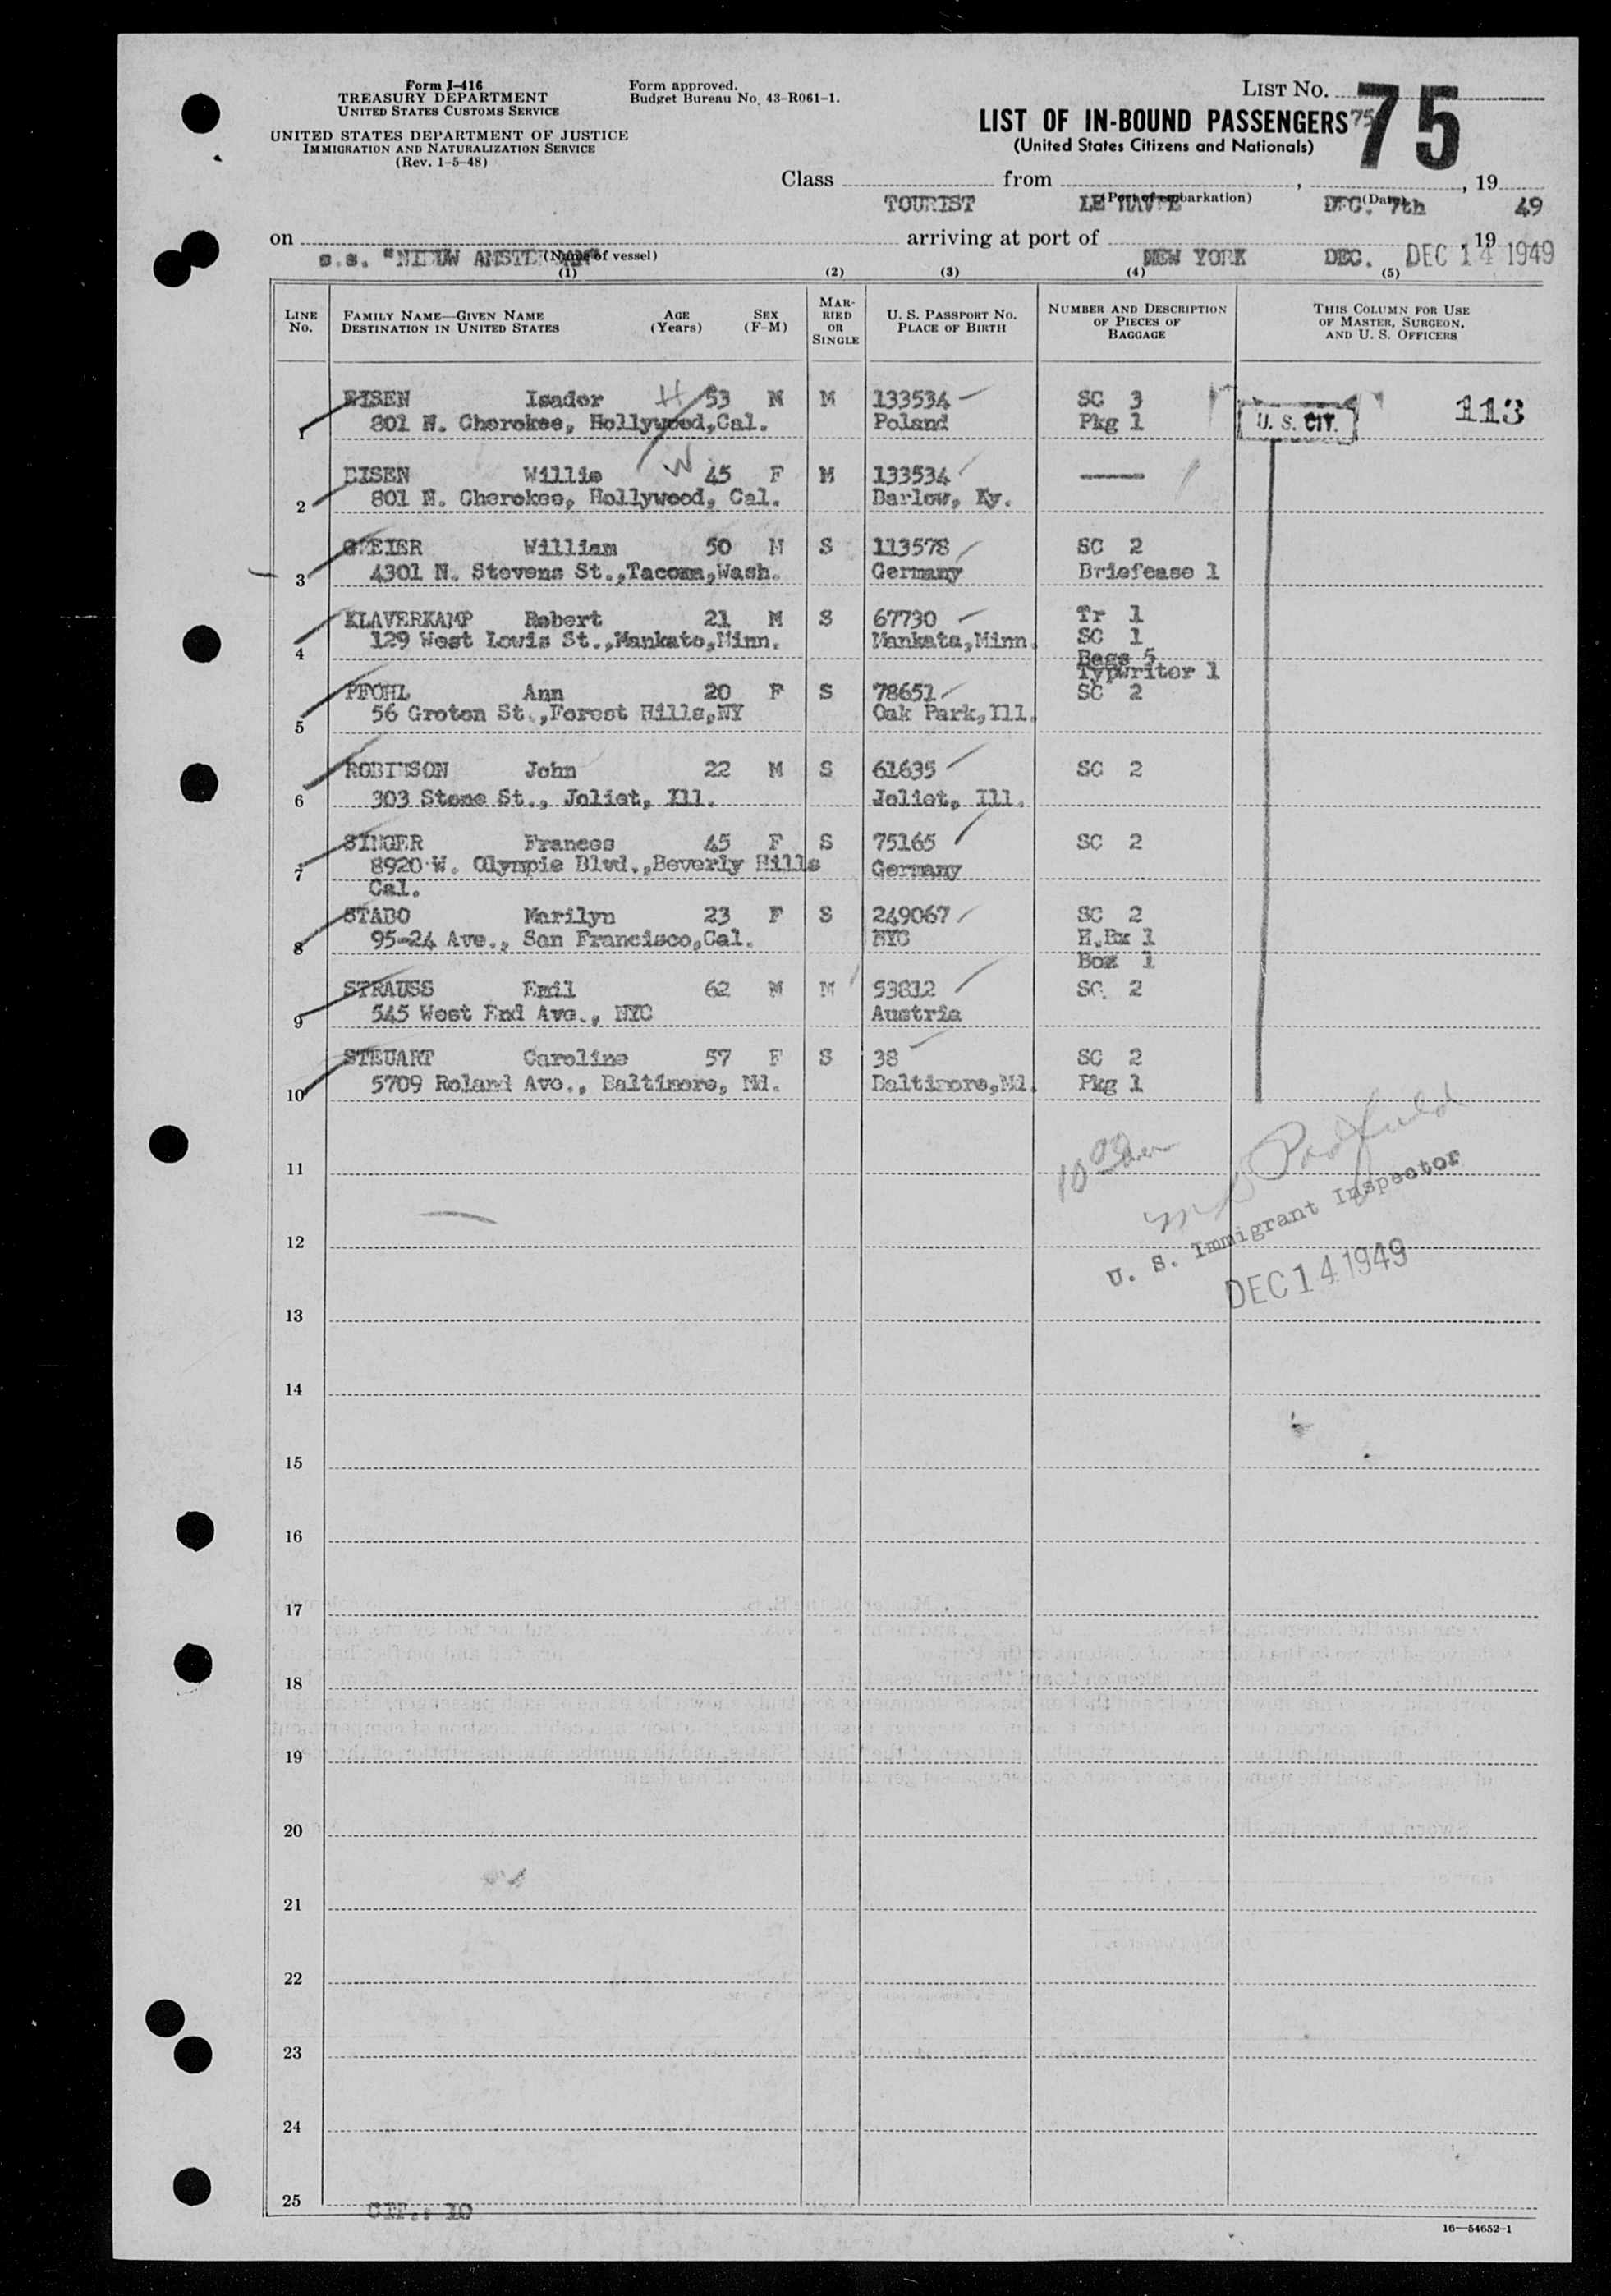 Form I-416
TREASURY DEPARTMENT
UNITED STATES CUSTOMS SERVICE
UNITED STATES DEPARTMENT OF JUSTICE
IMMIGRATION AND NATURALIZATION SERVICE
(Rev. 1-5-48)
Form approved.
Budget Bureau No. 43-R061-1.
LIST No. 75
LIST OF IN-BOUND PASSENGERS 75
(United States Citizens and Nationals)
Class from , , 19
TOURIST LE HAVRE (Port of embarkation) DEC. 7th (Date) 49
on arriving at port of , 19
s.s. "NIEUW AMSTERDAM" (Name of vessel) NEW YORK DEC. DEC 14 1949
(1) (2) (3) (4) (5)
LINE No. FAMILY NAME—GIVEN NAME DESTINATION IN UNITED STATES AGE (Years) SEX (F-M) MARRIED OR SINGLE U. S. PASSPORT NO. PLACE OF BIRTH NUMBER AND DESCRIPTION OF PIECES OF BAGGAGE THIS COLUMN FOR USE OF MASTER, SURGEON, AND U. S. OFFICERS
EISEN Isador H 53 M M 133534 SC 3
1 801 N. Cherokee, Hollywood,Cal. Poland Pkg 1 U. S. CIT. 113
EISEN Willie W 45 F M 133534
2 801 N. Cherokee, Hollywood, Cal. Barlow, Ky.
GREIER William 50 M S 113578 SC 2
3 4301 N. Stevens St.,Tacoma,Wash. Germany Briefcase 1
KLAVERKAMP Robert 21 M S 67730 Tr 1
4 129 West Lewis St.,Mankato,Minn. Mankata,Minn. SC 1
Bags 5
Typwriter 1
PFOHL Ann 20 F S 78651 SC 2
5 56 Groton St.,Forest Hills,NY Oak Park,Ill.
ROBINSON John 22 M S 61635 SC 2
6 303 Stone St., Joliet, Ill. Joliet, Ill.
SINGER Frances 45 F S 75165 SC 2
7 8920 W. Olympic Blvd.,Beverly Hills Germany
Cal.
STABO Marilyn 23 F S 249067 SC 2
8 95-24 Ave., San Francisco,Cal. NYC H.Bx 1
Box 1
STRAUSS Emil 62 M M 53812 SC 2
9 545 West End Ave., NYC Austria
STEUART Caroline 57 F S 38 SC 2
10 5709 Roland Ave., Baltimore, Md. Baltimore,Md. Pkg 1
11
12 U. S. Immigrant Inspector
13 DEC 14 1949
14
15
16
17
18
19
20
21
22
23
24
25
CIT.: 10
16—54652-1